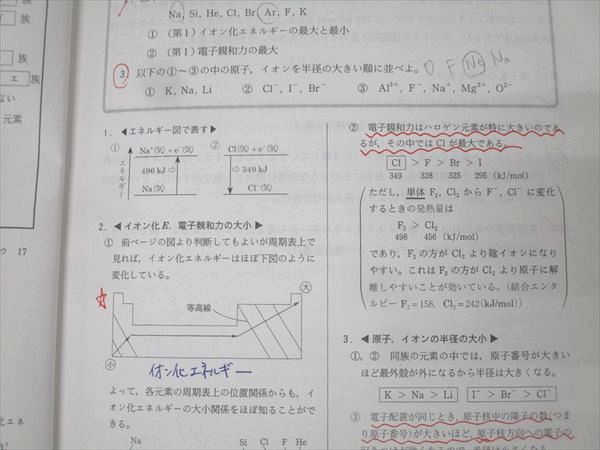 族
エ 族
ない
元素
ウ 17
Na, Si, He, Cl, Br, Ar, F, K
① (第1) イオン化エネルギーの最大と最小
② (第1) 電子親和力の最大
3. 以下の①~③の中の原子, イオンを半径の大きい順に並べよ。
O F Ne Na
① K, Na, Li ② Cl⁻, I⁻, Br⁻ ③ Al³⁺, F⁻, Na⁺, Mg²⁺, O²⁻
1. ◀エネルギー図で表す▶
① Na⁺(気)+e⁻(気) ② Cl(気)+e⁻(気)
エネルギー
496 kJ ⇨ ⇨349 kJ
Na(気) Cl⁻(気)
2. ◀イオン化E, 電子親和力の大小▶
① 前ページの図より判断してもよいが周期表上で
見れば, イオン化エネルギーはほぼ下図のように
変化している。
☆
大
等高線
小
イオン化エネルギー
よって, 各元素の周期表上の位置関係からも, イ
オン化エネルギーの大小関係をほぼ知ることがで
きる。
Na Si Cl F He
② 電子親和力はハロゲン元素が特に大きいのであ
るが, その中ではClが最大である。
Cl > F > Br > I
349 328 325 295 (kJ/mol)
ただし, 単体 F₂, Cl₂ から F⁻, Cl⁻ に変化
するときの発熱量は
F₂ > Cl₂
498 456 (kJ/mol)
であり, F₂ の方が Cl₂ より陰イオンになり
やすい。これは F₂ の方が Cl₂ より原子に解
離しやすいことが効いている。(結合エンタ
ルピー F₂=158, Cl₂=242(kJ/mol))
3. ◀原子, イオンの半径の大小▶
①, ② 同族の元素の中では, 原子番号が大きい
ほど最外殻が外になるから半径は大きくなる。
K > Na > Li I⁻ > Br⁻ > Cl⁻
③ 電子配置が同じとき, 原子核中の陽子の数(つま
り原子番号)が大きいほど, 原子核方向への電子の